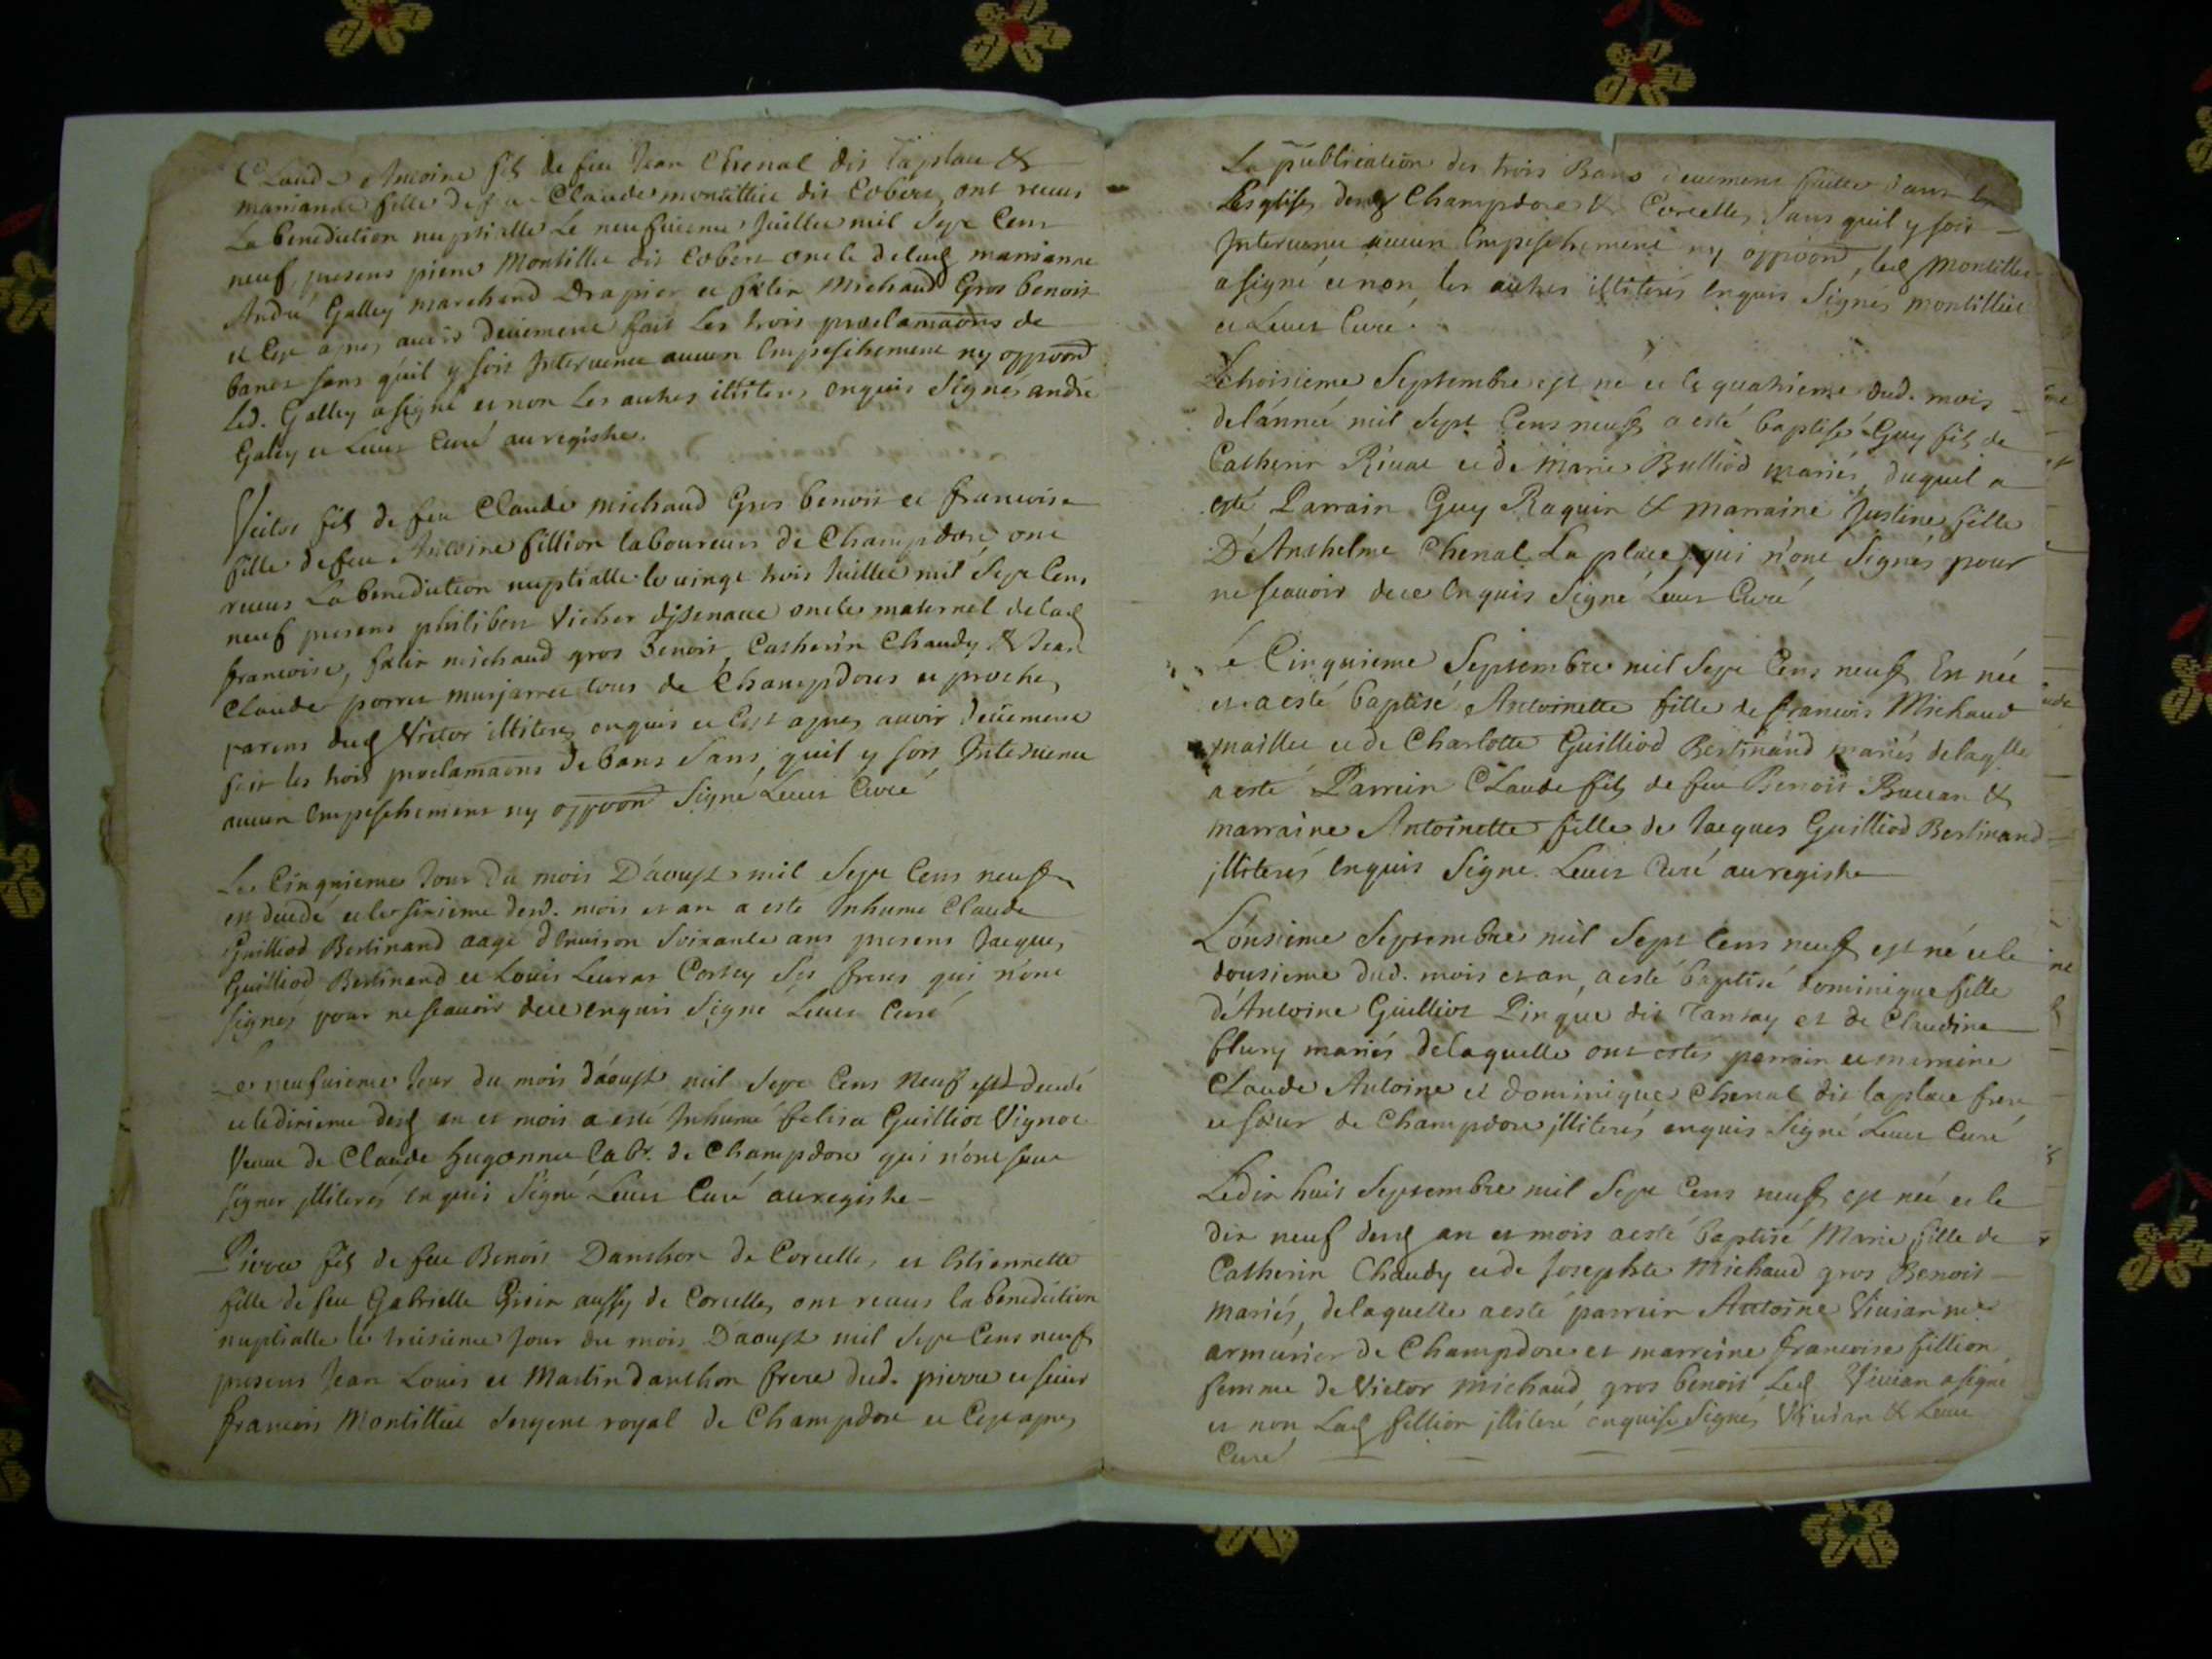 Claude Antoine fils de feu Jean Chenal dit Laplace &
marianne fille de feu Claude montillier dit Cobere, ont receus
La benediction nuptialle Le neufuieme Juillet mil Sept Cens
neuf, presens pierre Montillier dit Cobere oncle de lad marianne
André Galley marchand Drapier et felix Michaud Gros benoit
et Ce apres auoir deuement fait Les trois proclamaons de
bancs sans quil y soit Interuenu aucun Empeschement ny oppoon
Led. Galley a signé et non Les autres illiteres enquis Signes andré
Galley et Leuet Curé au registre.
Victor fils de feu Claude michaud Gros benoit et francoise
fille de feu Antoine fillion laboureur de Champdore, ont
receus La benediction nuptialle le uingt trois Juillet mil Sept Cens
neuf presens philibert Vicher oncle maternel de lad
francoise, felix michaud gros Benoit, Catherin Chaudy & Jean
Claude porret tous de Champdores et proches
parens dud Victor illiteres enquis et Ce apres auoir deuement
fait les trois proclamaons de bans Sans quil y soit Interuenu
aucun Empeschement ny oppoon Signé Leuet Curé
Le Cinquieme Jour Du mois D'aoust mil Sept Cens neuf
est decedé et le sixieme desd. mois et an a esté Inhumé Claude
Guilliod Bertinand aagé d'enuiron Soixante ans presens Jacques
Guilliod Bertinand et Louis Ses freres qui n'ont
signés pour ne scauoir de ce enquis Signé Leuet Curé
Le neufuieme Jour du mois d'aoust mil Sept Cens Neuf est decedé
et le dixieme desd an et mois a esté Inhumé felisa Guilliot Vignot
Veuue de Claude hugonnet labr. de Champdore qui n'ont sceu
signer illiterés enquis Signé Leuet Curé au registre
Pierre fils de feu Benoit Danthon de Corcelles et Estiennette
fille de feu Gabrielle aussy de Corcelles ont receus la benediction
nuptialle le treisieme Jour du mois D'aoust mil Sept Cens neuf
presens Jean Louis et Martin danthon frere dud. pierre et sieur
francois Montillier Sergent royal de Champdore et Ce apres
La publication des trois Bans deuement faitte dans les
Esglises desd Champdore & Corcelles, Sans quil y soit
Interuenu aucun Empeschement ny oppoon, led Montillier
a signé et non les autres illiterés Enquis Signés montillier
et Leuet Curé.
Le troisieme Septembre est né et le quatrieme dud. mois
de l'année mil Sept Cens neuf a esté baptisé Guy fils de
Catherin Riuat et de Marie Bulliod mariés, duquel a
esté Parrain Guy Raquin & marraine Justine fille
D'Anthelme Chenal La place, qui n'ont Signés pour
ne scauoir de ce Enquis Signé Leuet Curé
Le Cinquieme Septembre mil Sept Cens neuf En née
et a esté baptisé Antoinette fille de francois Michaud
maillet et de Charlotte Guilliod Bertinand mariés de laqlle
a esté Parrein Claude fils de feu Benoit &
marraine Antoinette fille de Jacques Guilliod Bertinand
illiterés Enquis Signé Leuet Curé au registre
L'onsieme Septembre mil Sept Cens neuf est né et le
dousieme dud. mois et an, a esté baptisé dominique fille
d'Antoine Guilliot Pinque dit Tansay et de Claudine
flury mariés de laquelle ont estés parrain et marreine
Claude Antoine et dominique Chenal dit la place frere
et sœur de Champdore illiterés enquis Signé Leuet Curé
Le dix huit Septembre mil Sept Cens neuf est née et le
dix neuf desd an et mois a esté baptisé Marie fille de
Catherin Chaudy et de Josephte Michaud gros Benoit
mariés, de laquelle a esté parrein Antoine Viuian me
armurier de Champdore et marreine francoise fillion
femme de Victor michaud gros benoit Led Viuian a signé
et non Lad fillion illiteré enquise Signés Viuian & Leuet
Curé